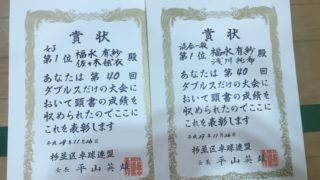 賞状
女子
第1位 福永 有紗
佐々木 椋衣 殿
あなたは 第40回
ダブルスだけの大会に
おいて頭書の成績を
収められたのでここに
これを表彰します
平成29年11月26日
杉並区卓球連盟
会長 平山英雄
賞状
混合一般
第1位 福永 有紗
浅川 殿
あなたは 第40回
ダブルスだけの大会に
おいて頭書の成績を
収められたのでここに
これを表彰します
平成29年11月26日
杉並区卓球連盟
会長 平山英雄